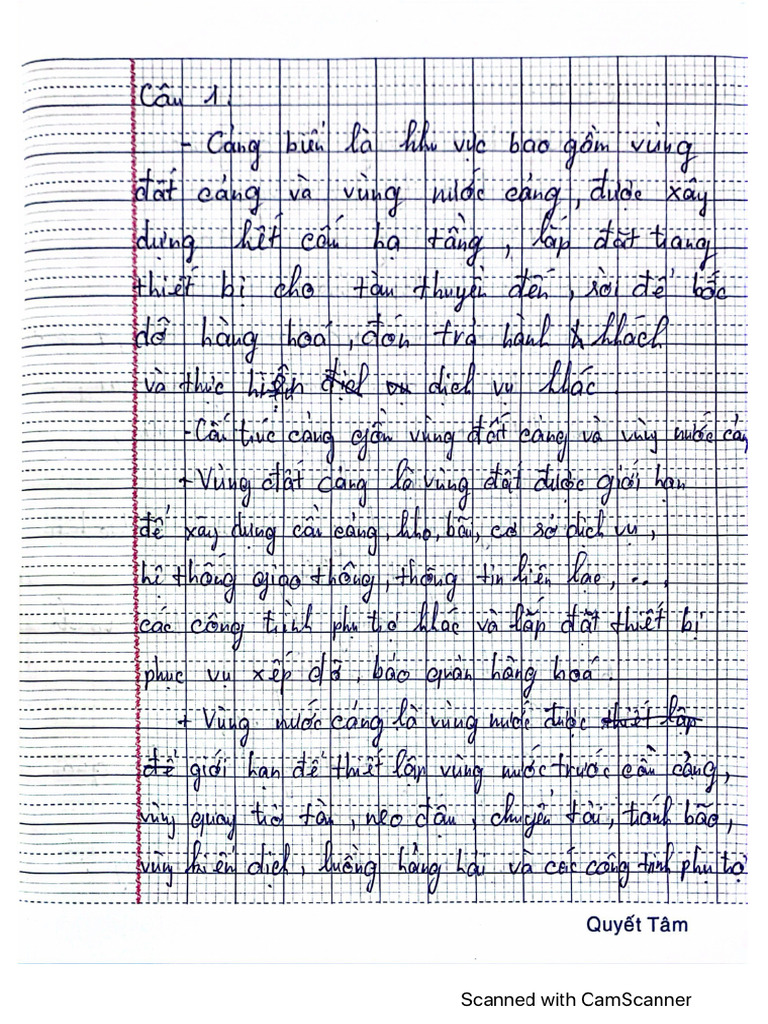 Câu 1.
- Cảng biển là khu vực bao gồm vùng
đất cảng và vùng nước cảng, được xây
dựng kết cấu hạ tầng, lắp đặt trang
thiết bị cho tàu thuyền đến, rời để bốc
dỡ hàng hoá, đón trả hành khách
và thực hiện dịch vụ dịch vụ khác.
- Cấu trúc cảng gồm vùng đất cảng và vùng nước cảng
+ Vùng đất cảng là vùng đất được giới hạn
để xây dựng cầu cảng, kho, bãi, cơ sở dịch vụ,
hệ thống giao thông, thông tin liên lạc, ...,
các công trình phụ trợ khác và lắp đặt thiết bị
phục vụ xếp dỡ, bảo quản hàng hoá.
+ Vùng nước cảng là vùng nước được thiết lập
để giới hạn để thiết lập vùng nước trước cầu cảng,
vùng quay trở tàu, neo đậu, chuyển tải, tránh bão,
vùng kiểm dịch, luồng hàng hải và các công trình phụ trợ
Quyết Tâm
Scanned with CamScanner